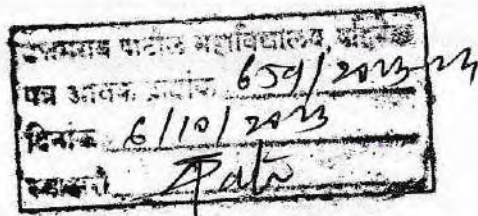 उत्तमराव पाटील महाविद्यालय, दहिवेल
पत्र आवक क्रमांक 659/2023-24
दिनांक 6/10/2023
स्वाक्षरी